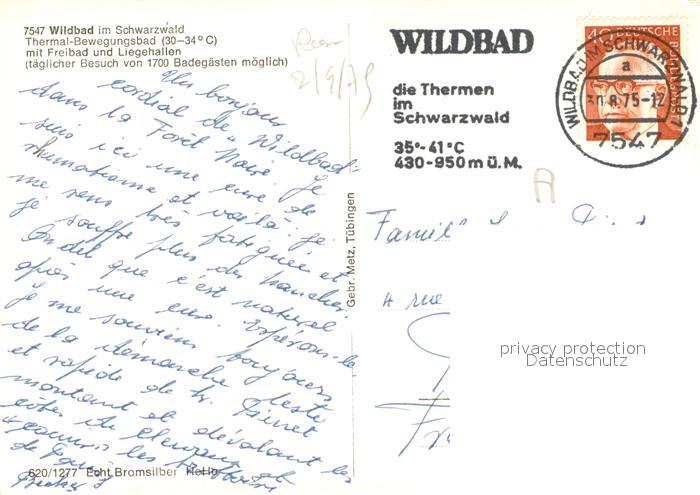 7547 Wildbad im Schwarzwald
Thermal-Bewegungsbad (30–34° C)
mit Freibad und Liegehallen
(täglicher Besuch von 1700 Badegästen möglich)
2/9/75
Un bonjour
cordial de "Wildbad"
dans la Forêt Noire. Je
suis ici une cure de
rhumatisme et voilà je
me sens très fatiguée et
je souffre plus des hanches.
On dit que c'est naturel
après une cure. Espérons-le
Je me souviens toujours
de la démarche leste
et rapide de
montant et dévalant les
côtes de
620/1277 Echt Bromsilber
Gebr. Metz, Tübingen
WILDBAD
die Thermen
im
Schwarzwald
35°-41°C
430-950 m ü. M.
40 DEUTSCHE
WILDBAD IM SCHWARZWALD 1
a
30.8.75-12
7547
A
Famil
4 rue
Fr
privacy protection
Datenschutz